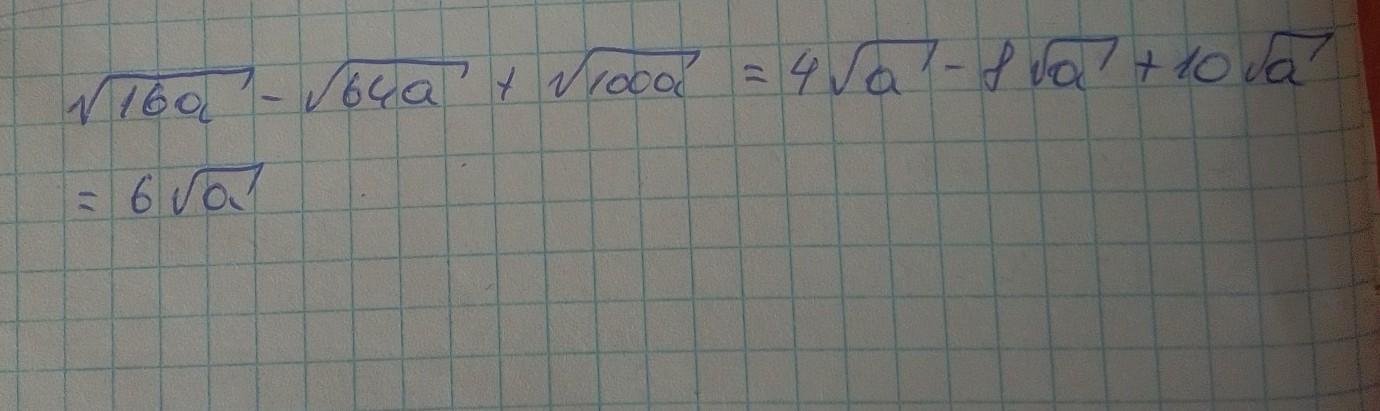 √16a - √64a + √100a = 4√a - 8√a + 10√a
= 6√a